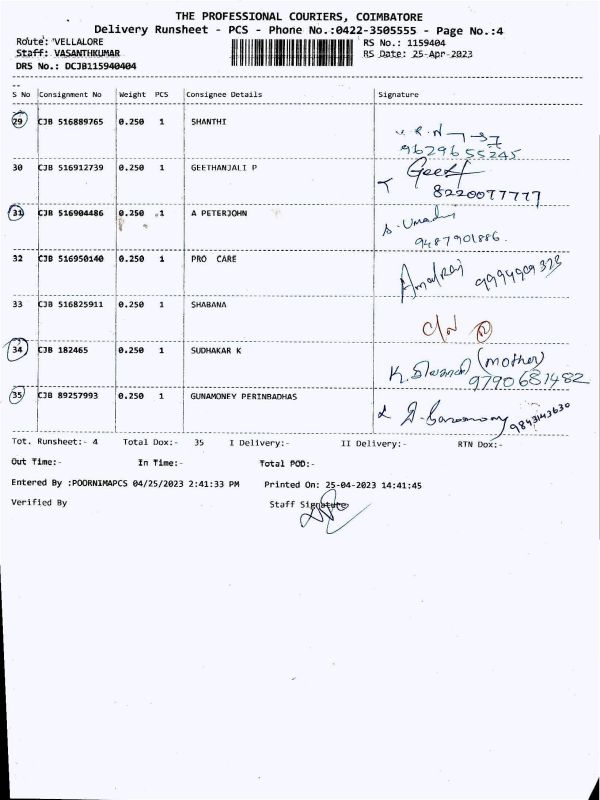 THE PROFESSIONAL COURIERS, COIMBATORE
Delivery Runsheet - PCS - Phone No.:0422-3505555 - Page No.:4
Route: VELLALORE RS No.: 1159404
Staff: VASANTHKUMAR RS Date: 25-Apr-2023
DRS No.: DCJB115940404
S No Consignment No Weight PCS Consignee Details Signature
29 CJB 516889765 0.250 1 SHANTHI
9629655245
30 CJB 516912739 0.250 1 GEETHANJALI P Geeth
8220077777
31 CJB 516904486 0.250 1 A PETERJOHN
9487901886.
32 CJB 516950140 0.250 1 PRO CARE Amalraj 9994909323
33 CJB 516825911 0.250 1 SHABANA
34 CJB 182465 0.250 1 SUDHAKAR K K. (mother)
9790681482
35 CJB 89257993 0.250 1 GUNAMONEY PERINBADHAS
9843143630
Tot. Runsheet:- 4 Total Dox:- 35 I Delivery:- II Delivery:- RTN Dox:-
Out Time:- In Time:- Total POD:-
Entered By :POORNIMAPCS 04/25/2023 2:41:33 PM Printed On: 25-04-2023 14:41:45
Verified By Staff Signature